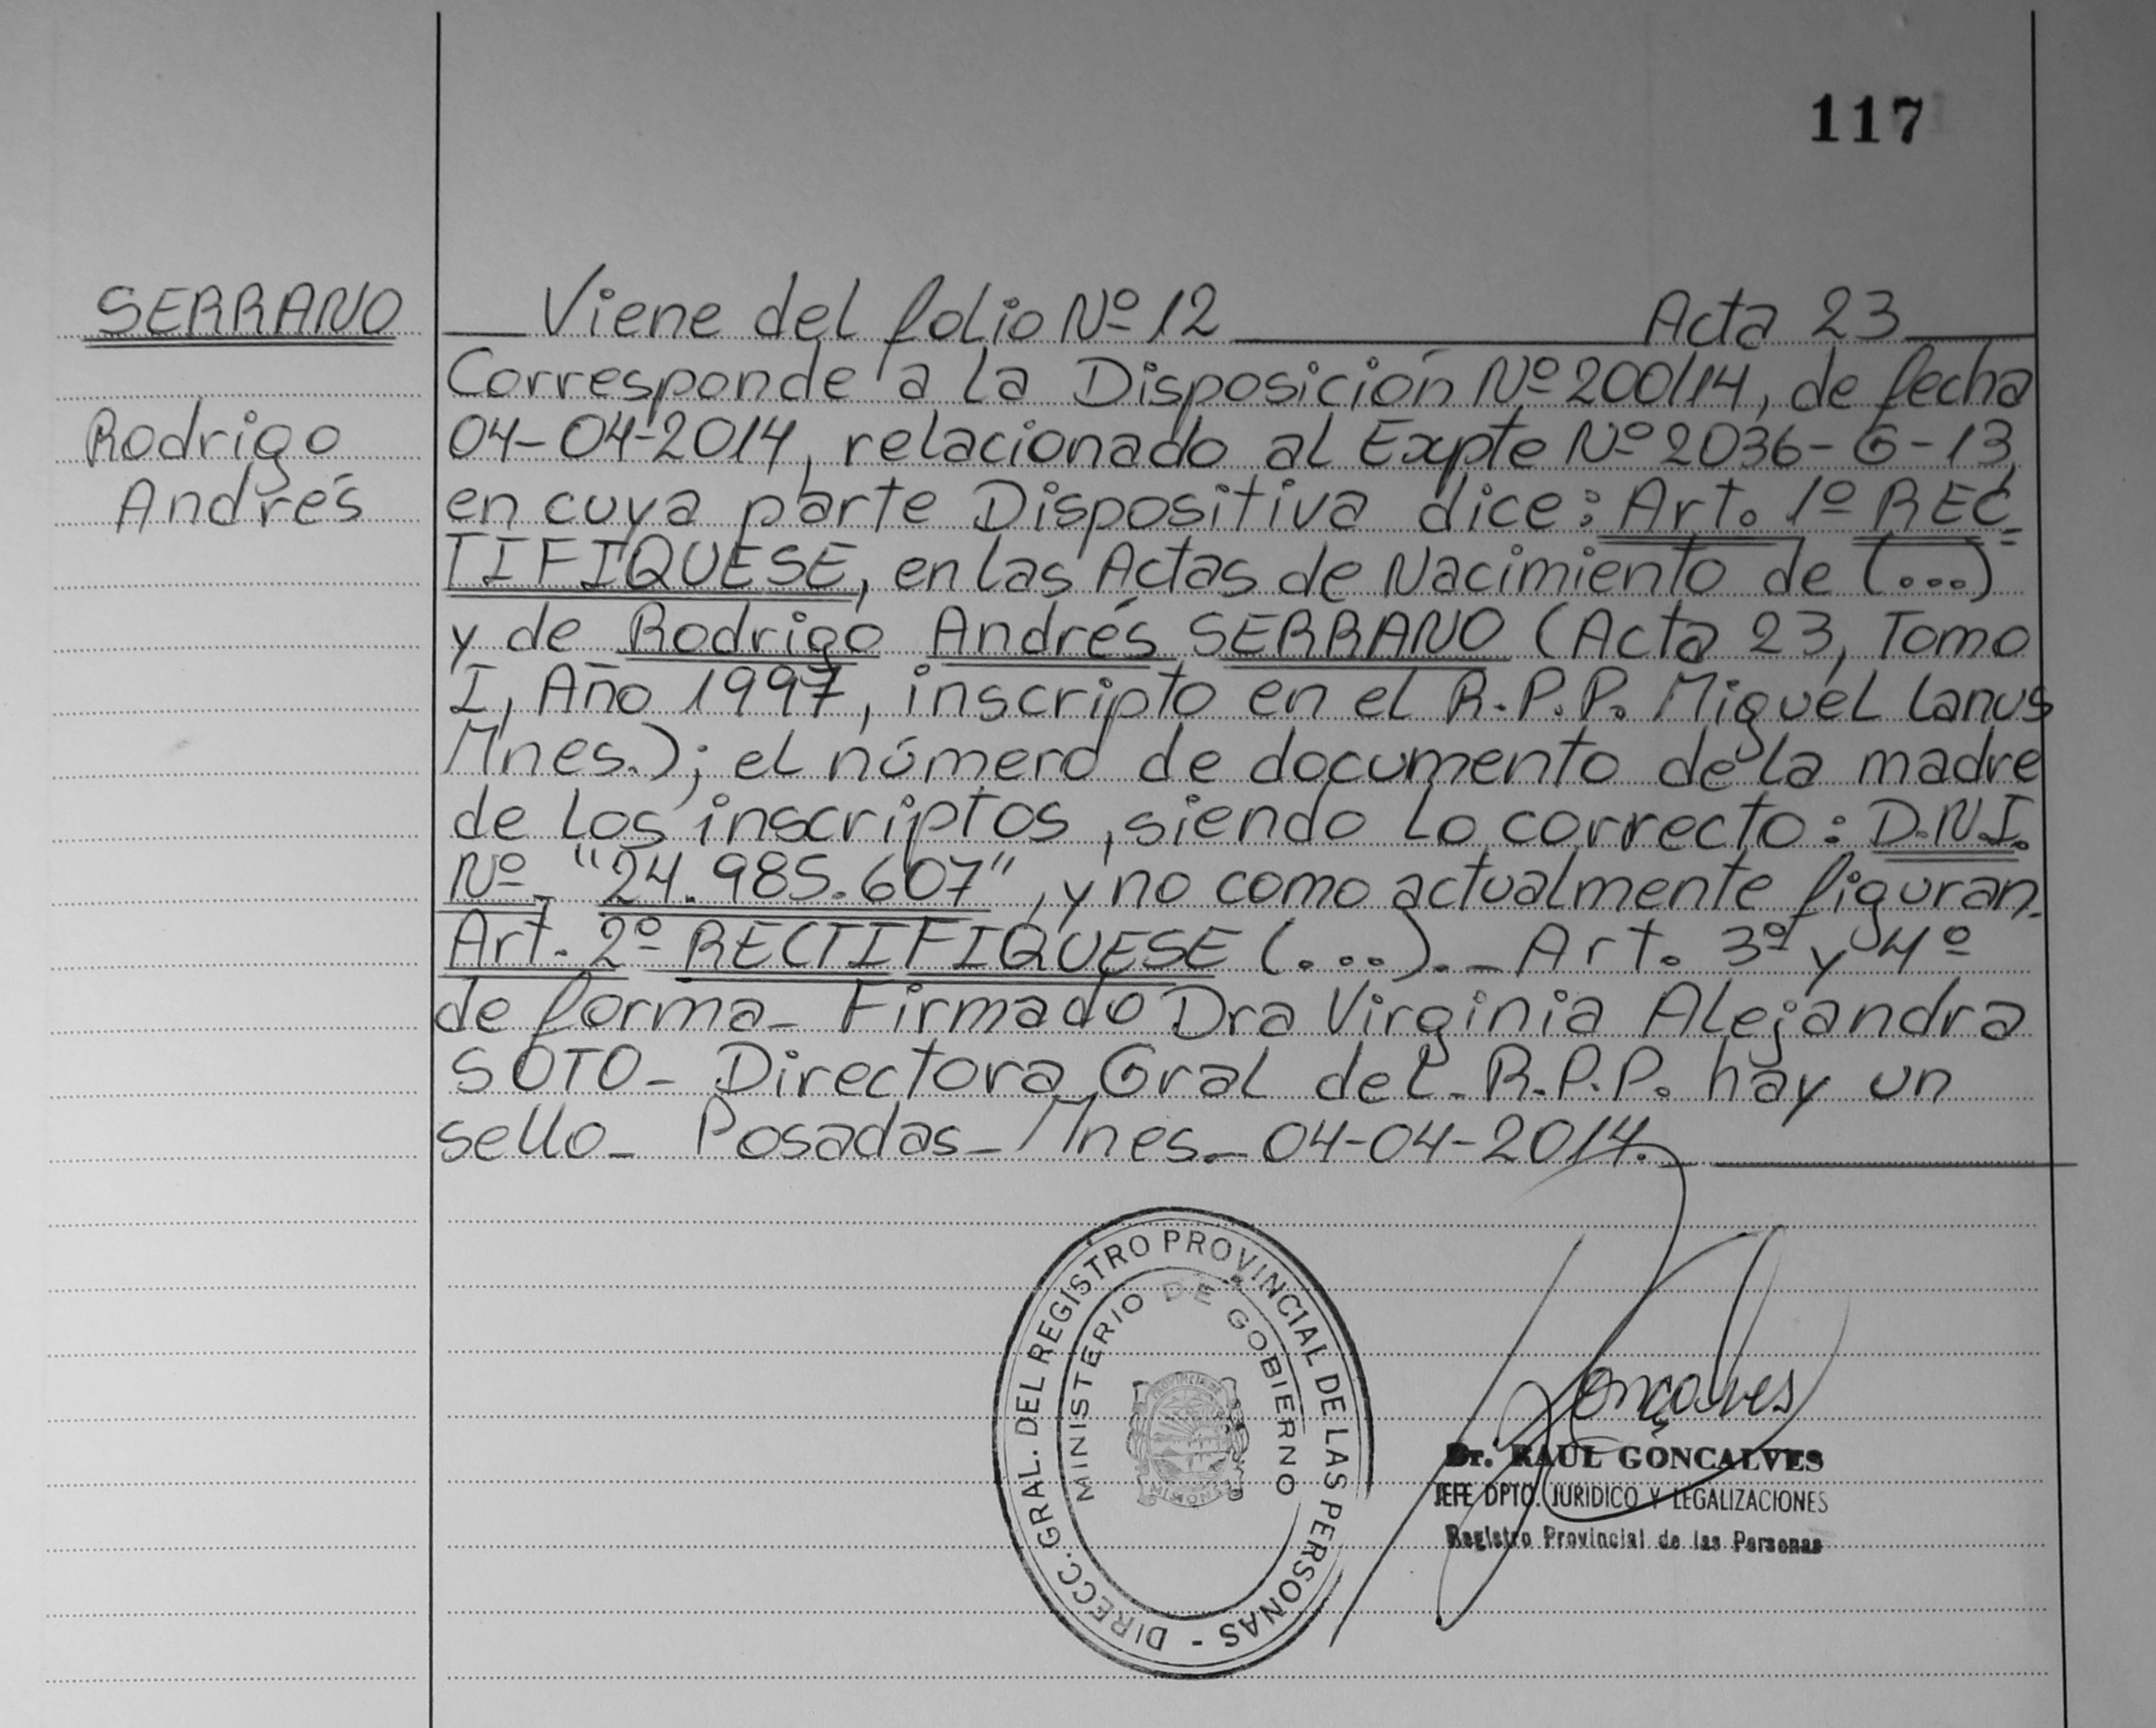 117
SERRANO
Rodrigo
Andrés
Viene del folio Nº 12 Acta 23
Corresponde a la Disposición Nº 200/14, de fecha
04-04-2014, relacionado al Expte Nº 2036-G-13,
en cuya parte Dispositiva dice: Art. 1º REC=
TIFIQUESE, en las Actas de Nacimiento de (...)
y de Rodrigo Andrés SERRANO (Acta 23, Tomo
I, Año 1997, inscripto en el R.P.P. Miguel Lanus
Mnes.); el número de documento de la madre
de los inscriptos, siendo lo correcto: D.N.I.
Nº "24.985.607", y no como actualmente figuran.
Art. 2º RECTIFIQUESE (....)._ Art. 3º y 4º
de forma_ Firmado Dra Virginia Alejandra
SOTO_ Directora Gral del_ R.P.P. hay un
sello_ Posadas_ Mnes_ 04-04-2014.
DIRECC. GRAL. DEL REGISTRO PROVINCIAL DE LAS PERSONAS -
MINISTERIO DE GOBIERNO
PROVINCIA DE
MISIONES
Gonçalves
Dr. RAUL GONCALVES
JEFE DPTO. JURIDICO Y LEGALIZACIONES
Registro Provincial de las Personas